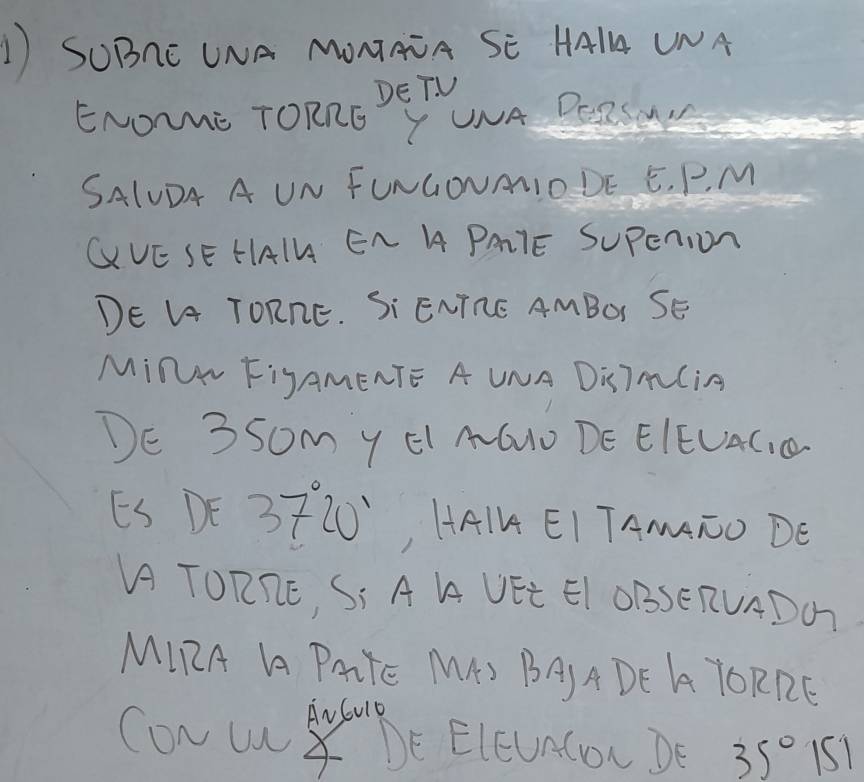 1) SOBRE UNA MONTAÑA SE HALLA UNA
ENORME TORRE DE T.V Y UNA PERSONA
SALUDA A UN FUNCIONARIO DE E.P.M
QUE SE HALLA EN LA PARTE SUPERIOR
DE LA TORRE. Si ENTRE AMBOS SE
MiRAN FiJAMENTE A UNA DiSTANCiA
DE 350m y El ANGULO DE ElEVACION
ES DE 37°20', HAllA El TAMAÑO DE
LA TORRE, Si A LA VEZ El OBSERVADOR
MIRA LA PARTE MAS BAJA DE LA TORRE
CON UN ∡ ÁNGULO DE ElEVACION DE 35°15'